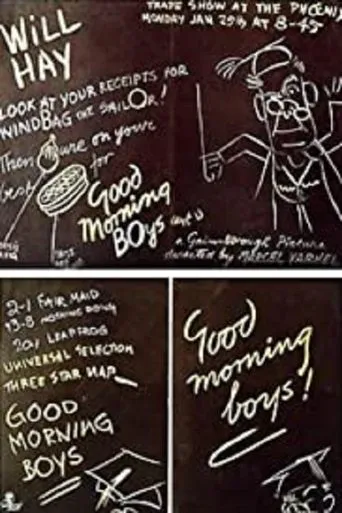 TRADE SHOW AT THE PHOENIX
MONDAY JAN 25th AT 8-45
WiLL
HAY
LOOK AT YOUR RECEIPTS FOR
WINDBAG THE SAILOR!
Then on your
best for
Good
Morning
BOys
a Gainsborough Picture
directed by MARCEL VARNEL
2-1 FAIR MAID
13-8 NOTHING DOING
20/1 LEAPFROG
UNIVERSAL SELECTION
THREE STAR NAP
GOOD
MORNING
BOYS
Good
morning
boys!